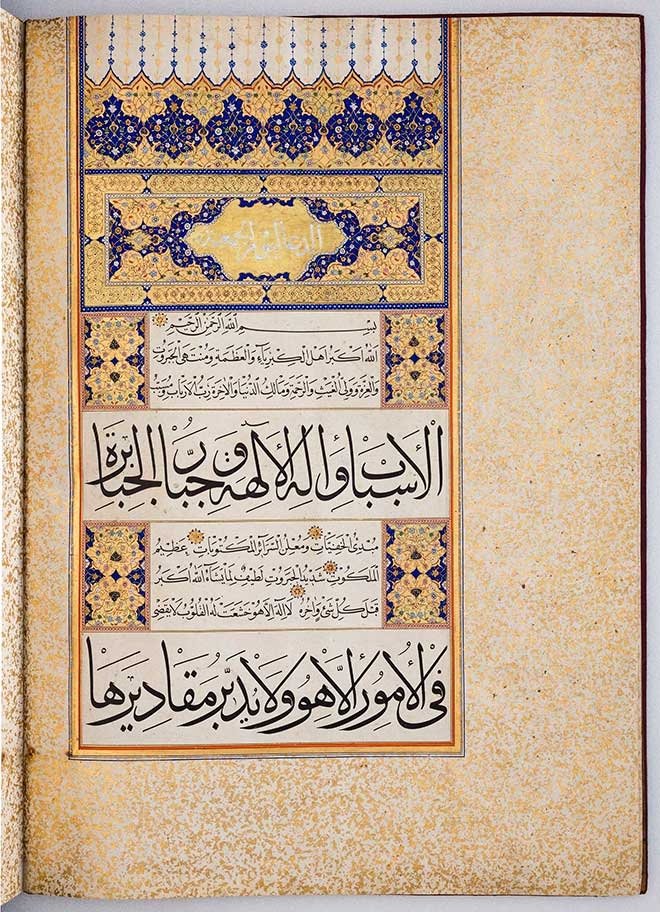 بِسْمِ اللهِ الرَّحْمٰنِ الرَّحِيْمِ
اَللهُ اَكْبَرُ اَهْلَ الْكِبْرِيَآءِ وَالْعَظَمَةِ وَمُنْتَهَى الْجَبَرُوتِ
وَالْعِزَّةِ وَوَلِيَّ الْغَيْثِ وَالرَّحْمَةِ وَمَالِكَ الدُّنْيَا وَالْاٰخِرَةِ رَبَّ الْاَرْبَابِ وَمُسَبِّبَ
الْأَسْبَابِ وَإِلٰهَ الْآلِهَةِ وَجَبَّارَ الْجَبَابِرَةِ
مُبْدِئَ الْخَفِيَّاتِ وَمُعْلِنَ السَّرَائِرِ الْمَكْتُوبَاتِ عَظِيمُ
الْمَلَكُوتِ شَدِيدُ الْجَبَرُوتِ لَطِيفٌ لِمَا يَشَآءُ اَللهُ اَكْبَرُ
قَبْلَ كُلِّ شَئٍ وَاٰخِرَهُ لَا اِلٰهَ اِلَّا هُوَ خَشَعَتْ لَهُ الْقُلُوبُ لَا يَقْضِي
فِي الْأُمُورِ إِلَّا هُوَ وَلَا يُدَبِّرُ مَقَادِيرَهَا